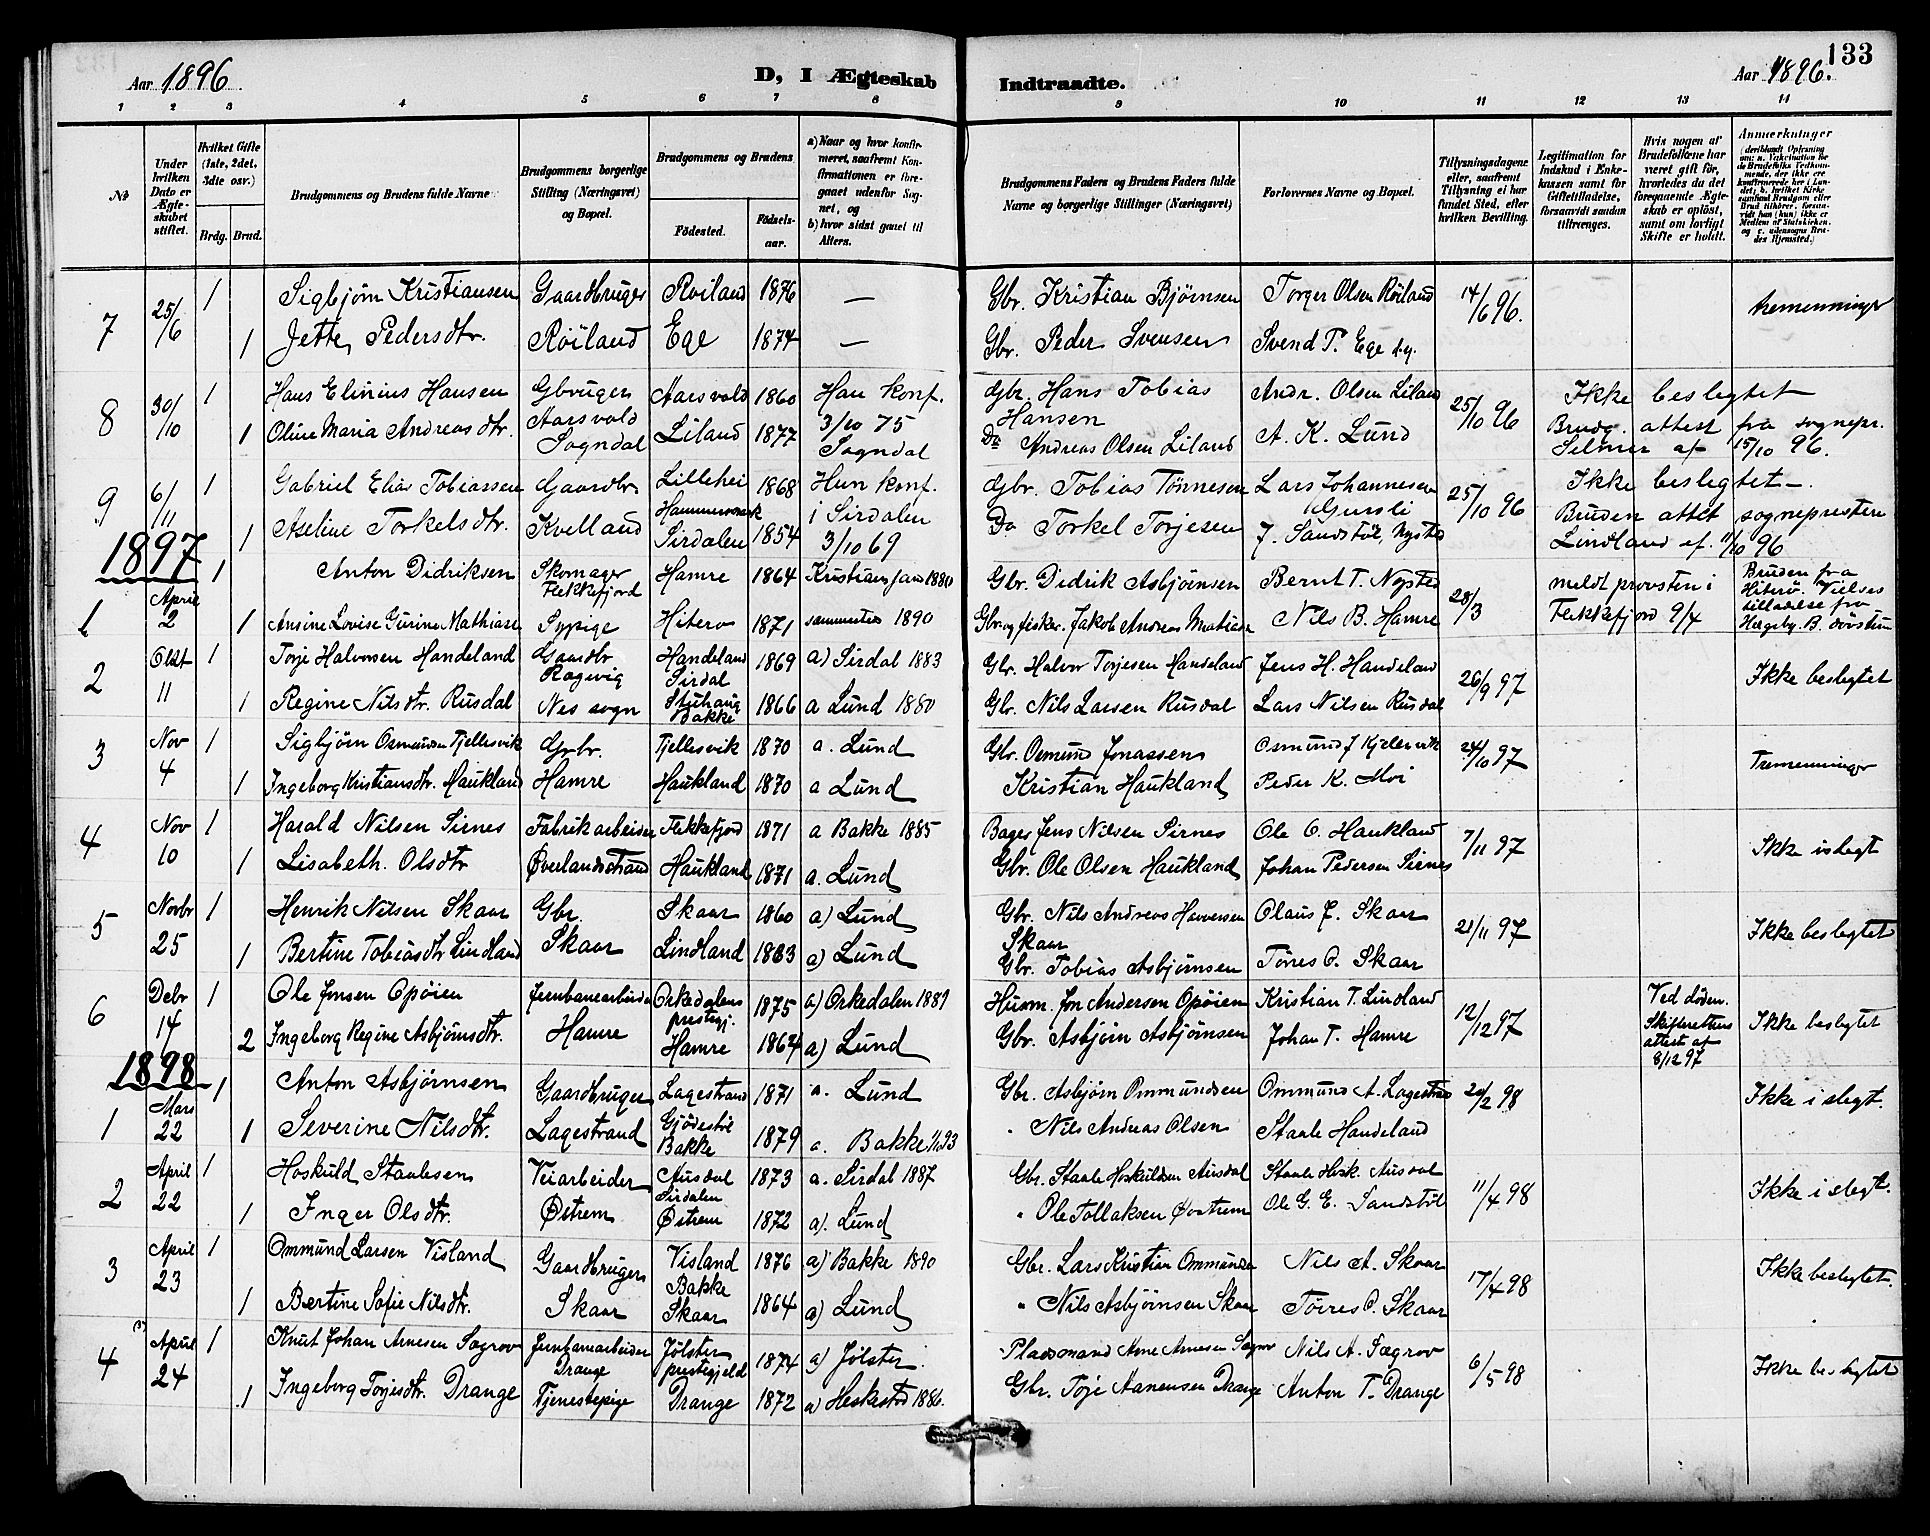 133
Aar 1896. D, I Ægteskab Indtraadte. Aar 1896.
1 2 3 4 5 6 7 8 9 10 11 12 13 14
№
Under hvilken Dato er Ægteskabet stiftet.
Hvilket Gifte (1ste, 2det, 3die osv.)
Brdg. Brud.
Brudgommens og Brudens fulde Navne
Brudgommens borgerlige Stilling (Næringsvei) og Bopæl.
Brudgommens og Brudens
Fødested. Fødselsaar.
a) Naar og hvor konfirmeret, saafremt Konfirmationen er foregaaet udenfor Sognet, og
b) hvor sidst gaaet til Alters.
Brudgommens Faders og Brudens Faders fulde Navne og borgerlige Stillinger (Næringsvei)
Forlovernes Navne og Bopæl.
Tillysningsdagene eller, saafremt Tillysning ei har fundet Sted, efter hvilken Bevilling.
Legitimation for Indskud i Enkekassen samt for Giftetilladelse, forsaavidt saadan tiltrænges.
Hvis nogen af Brudefolkene har været gift før, hvorledes da det foregaaende Ægteskab er opløst, samt om lovligt Skifte er holdt.
Anmærkninger
7 25/6 1 Sigbjørn Kristiansen Gaardbruger Røiland 1876 — Gbr. Kristian Bjørnsen Torger Olsen Røiland 14/6 96. tremenninger
1 Jette Pedersdtr. Røiland Ege 1874 — Gbr. Peder Svensen Svend T. Ege
8 30/10 1 Hans Elinius Hansen Gbruger Aarsvold 1860 Han konf. Gbr. Hans Tobias Hansen Andr. Olsen Liland 25/10 96 Ikke beslegtet
1 Oline Maria Andreasdtr. Aarsvold Sogndal Liland 1877 3/10 75 Sogndal Do Andreas Olsen Liland A. K. Lund Brudg. attest fra sognepr. Selmer af 15/10 96.
9 6/11 1 Gabriel Elias Tobiassen Gaardbr. Lillehei 1868 Hun konf. Gbr. Tobias Tønnesen Lars Johannesen 25/10 96 Ikke beslegtet.
1 Aseline Torkelsdtr. Kvelland Sirdalen 1854 i Sirdalen 3/10 69 Do Torkel Torjesen J. Sandstøl, Nysted Bruden attest sognepresten Lindland af 11/10 96
1897
1 April 2 1 Anton Didriksen Skomager Flekkefjord Hamre 1864 Kristiansand 1880 Gbr. Didrik Asbjørnsen Bernt T. Nysted 28/3 meldt provsten i Flekkefjord 9/4 Bruden fra Hiterø.
1 Ansine Lovise Gurine Mathiasen Sypige Hiterø 1871 sammesteds 1890 Gbr. og fisker. Jakob Andreas Matiasen Nils B. Hamre
2 Okt 11 1 Torje Halvorsen Handeland Gaardbr Ragvig Handeland Sirdal 1869 a) Sirdal 1883 Gbr. Halvor Torjesen Handeland Jens H. Handeland 26/9 97 Ikke beslegtet
1 Regine Nilsdtr. Rusdal Nes sogn Stuhaug Bakke 1866 a Lund 1880 Gbr. Nils Larsen Rusdal Lars Nilsen Rusdal
3 Nov 4 1 Sigbjørn Osmundsen Tjellesvik Gbr. Tjellesvik 1870 a. Lund Gbr. Osmund Jonassen Osmund J Kjelesvik 24/10 97 Tremenninger
1 Ingeborg Kristiansdtr. Haukland Hamre Haukland 1870 a Lund Kristian Haukland Peder K. Moi
4 Nov 10 1 Harald Nilsen Sirnes Fabrikarbeider Flekkefjord 1871 a Bakke 1885 Bager Jens Nilsen Sirnes Ole O. Haukland 7/11 97 Ikke i slegt
1 Lisabeth Olsdtr Øverlandsstrand Haukland 1871 a. Lund Gbr. Ole Olsen Haukland Johan Pedersen Sirnes
5 Novbr 25 1 Henrik Nilsen Skaar Gbr. Skaar 1860 a) Lund Gbr. Nils Andreas Havorsen Skaar Olaus J. Skaar 21/11 97 Ikke beslegtet
1 Bertine Tobiasdtr Lindland Skaar Lindland 1863 a) Lund Gbr. Tobias Asbjørnsen Tørres O. Skaar
6 Debr 14 1 Ole Jonsen Opøien Jernbanearbeider Orkedalens prestegj. 1875 a) Orkedalen 1889 Husm. Jon Andersen Opøien Kristian T. Lindland 12/12 97 Ved døden. Skifterettens attest af 8/12 97 Ikke beslegtet
2 Ingeborg Regine Asbjørnsdtr. Hamre Hamre 1864 a) Lund Gbr. Asbjørn Asbjørnsen Johan T. Hamre
1898
1 Mars 22 1 Anton Asbjørnsen Gaardbruger Lagestrand 1871 a. Lund Gbr. Asbjørn Ommundsen Ommund A. Lagestrand 20/2 98 Ikke i slegt.
1 Severine Nilsdtr. Lagestrand Gjødestøl Bakke 1879 a. Bakke 1893 " Nils Andreas Olsen Staale Handeland
2 April 22 1 Hoskuld Staalesen Veiarbeider Ausdal Sirdalen 1873 a. Sirdal 1887 Gbr. Staale Hoskuldsen Ausdal Staale Hosk. Ausdal 11/4 98 Ikke i slegt.
1 Inger Olsdtr. Østrem Østrem 1872 a). Lund " Ole Tollaksen Østrem Ole G. E. Sandstøl
3 April 23 1 Ommund Larsen Visland Gaardbruger Visland Bakke 1876 a) Bakke 1890 Gbr. Lars Kristian Ommundsen Nils A. Skaar 17/4 98 Ikke beslegtet.
1 Bertine Sofie Nilsdtr. Skaar Skaar 1864 a) Lund " Nils Asbjørnsen Skaar Tørres O. Skaar
4 April 24 1 Knut Johan Arnesen Sagrov Jernbanearbeider Drange Jølster prestegjeld 1874 a) Jølster Pladsmand Arne Arnesen Nils A. Sægrov 6/5 98 Ikke beslegtet
1 Ingeborg Torjesdtr. Drange Tjenestepige Drange 1872 a) Heskestad 1886. Gbr. Torje Aanensen Drange Anton T. Drange